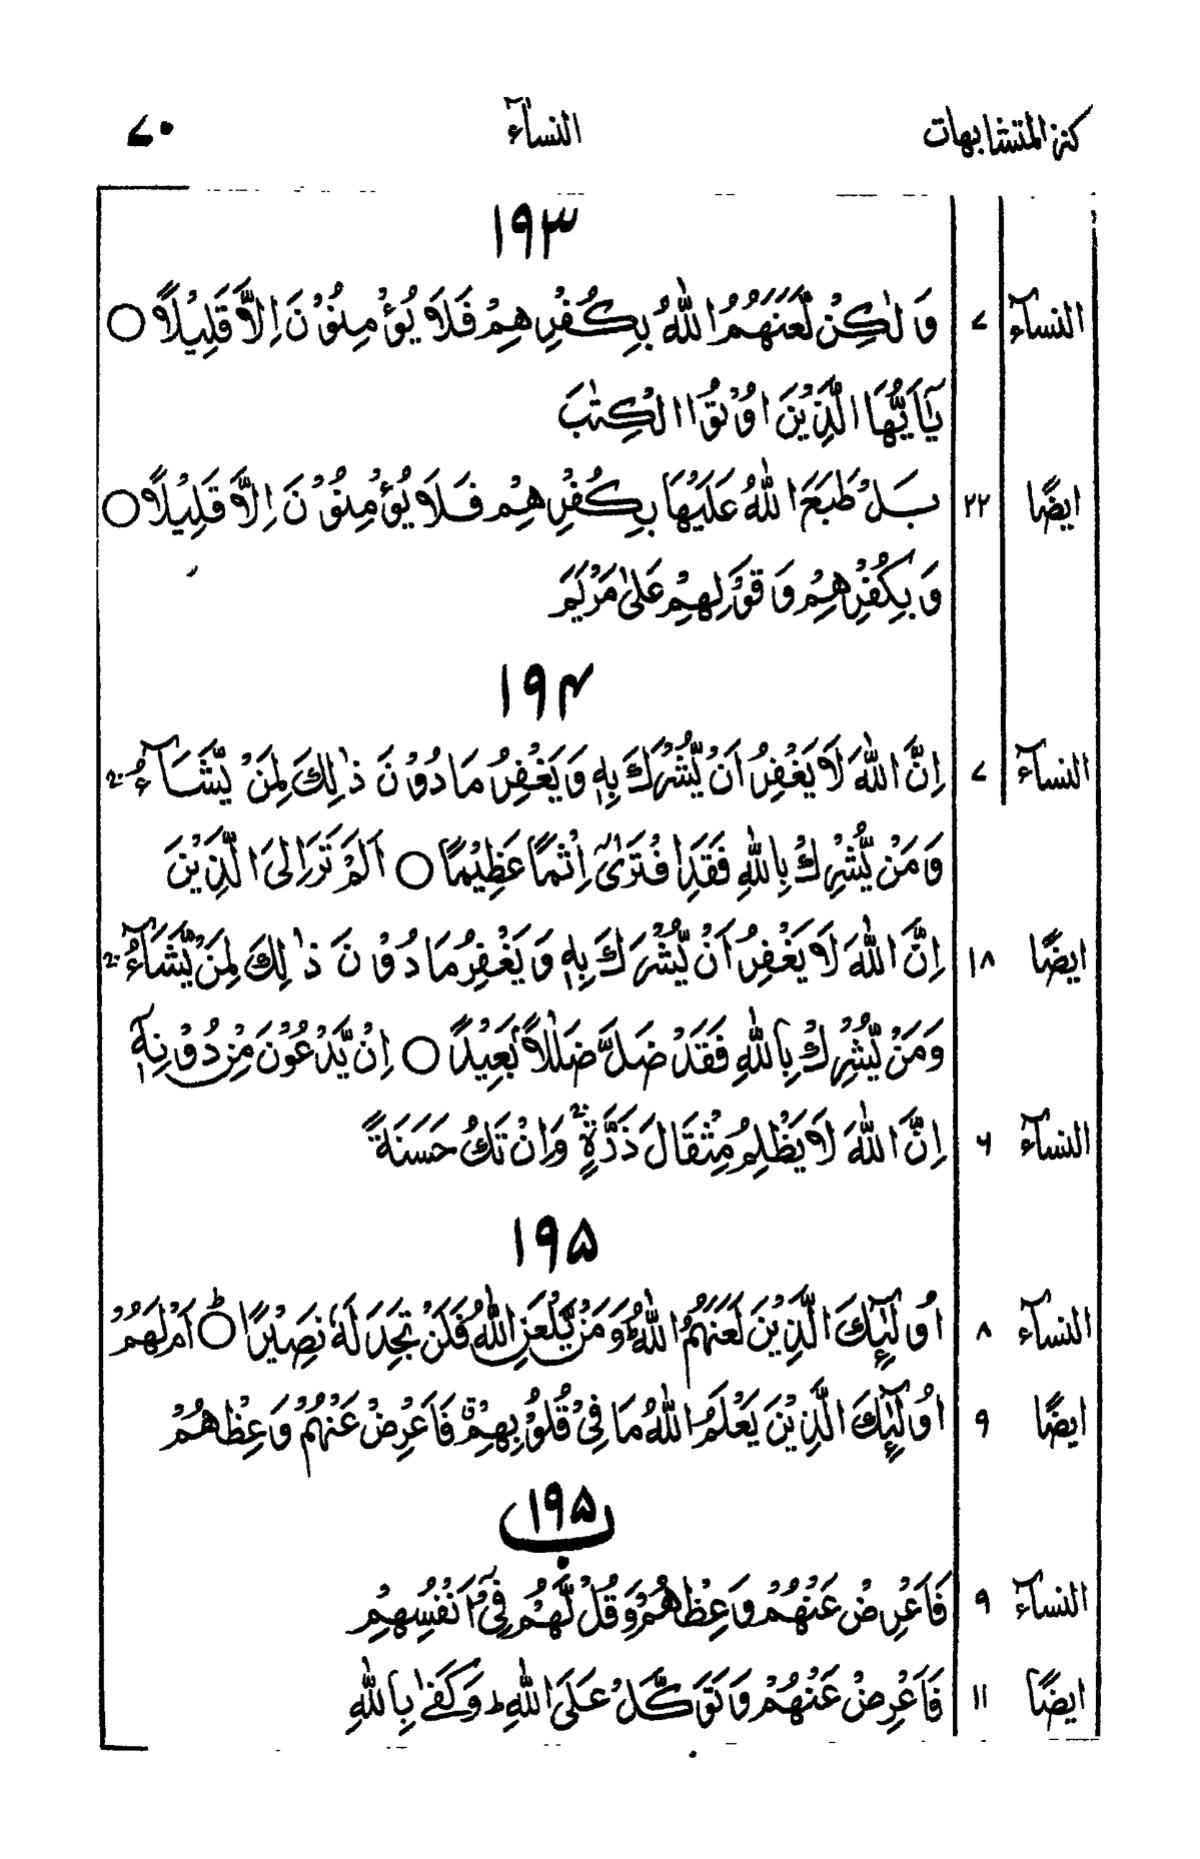 كنز المتشابهات النسآء ۷۰
۱۹۳
النسآء ۷ وَلٰكِنْ لَّعَنَهُمُ اللّٰهُ بِكُفْرِهِمْ فَلَا يُؤْمِنُوْنَ اِلَّا قَلِيْلًا ○
يٰۤاَيُّهَا الَّذِيْنَ اُوْتُوا الْكِتٰبَ
ايضًا ۲۲ بَلْ طَبَعَ اللّٰهُ عَلَيْهَا بِكُفْرِهِمْ فَلَا يُؤْمِنُوْنَ اِلَّا قَلِيْلًا ○
وَبِكُفْرِهِمْ وَقَوْلِهِمْ عَلٰى مَرْيَمَ
۱۹۴
النسآء ۷ اِنَّ اللّٰهَ لَا يَغْفِرُ اَنْ يُّشْرَكَ بِهٖ وَيَغْفِرُ مَا دُوْنَ ذٰلِكَ لِمَنْ يَّشَآءُ ۚ
وَمَنْ يُّشْرِكْ بِاللّٰهِ فَقَدِ افْتَرٰۤى اِثْمًا عَظِيْمًا ○ اَلَمْ تَرَ اِلَى الَّذِيْنَ
ايضًا ۱۸ اِنَّ اللّٰهَ لَا يَغْفِرُ اَنْ يُّشْرَكَ بِهٖ وَيَغْفِرُ مَا دُوْنَ ذٰلِكَ لِمَنْ يَّشَآءُ ۚ
وَمَنْ يُّشْرِكْ بِاللّٰهِ فَقَدْ ضَلَّ ضَلٰلًاۢ بَعِيْدًا ○ اِنْ يَّدْعُوْنَ مِنْ دُوْنِهٖۤ
النسآء ۶ اِنَّ اللّٰهَ لَا يَظْلِمُ مِثْقَالَ ذَرَّةٍ ۚ وَاِنْ تَكُ حَسَنَةً
۱۹۵
النسآء ۸ اُولٰٓئِكَ الَّذِيْنَ لَعَنَهُمُ اللّٰهُ ؕ وَمَنْ يَّلْعَنِ اللّٰهُ فَلَنْ تَجِدَ لَهٗ نَصِيْرًا ○ ؕ اَمْ لَهُمْ
ايضًا ۹ اُولٰٓئِكَ الَّذِيْنَ يَعْلَمُ اللّٰهُ مَا فِيْ قُلُوْبِهِمْ ۗ فَاَعْرِضْ عَنْهُمْ وَعِظْهُمْ
۱۹۵ ب
النسآء ۹ فَاَعْرِضْ عَنْهُمْ وَعِظْهُمْ وَقُلْ لَّهُمْ فِيْۤ اَنْفُسِهِمْ
ايضًا ۱۱ فَاَعْرِضْ عَنْهُمْ وَتَوَكَّلْ عَلَى اللّٰهِ ؕ وَكَفٰى بِاللّٰهِ